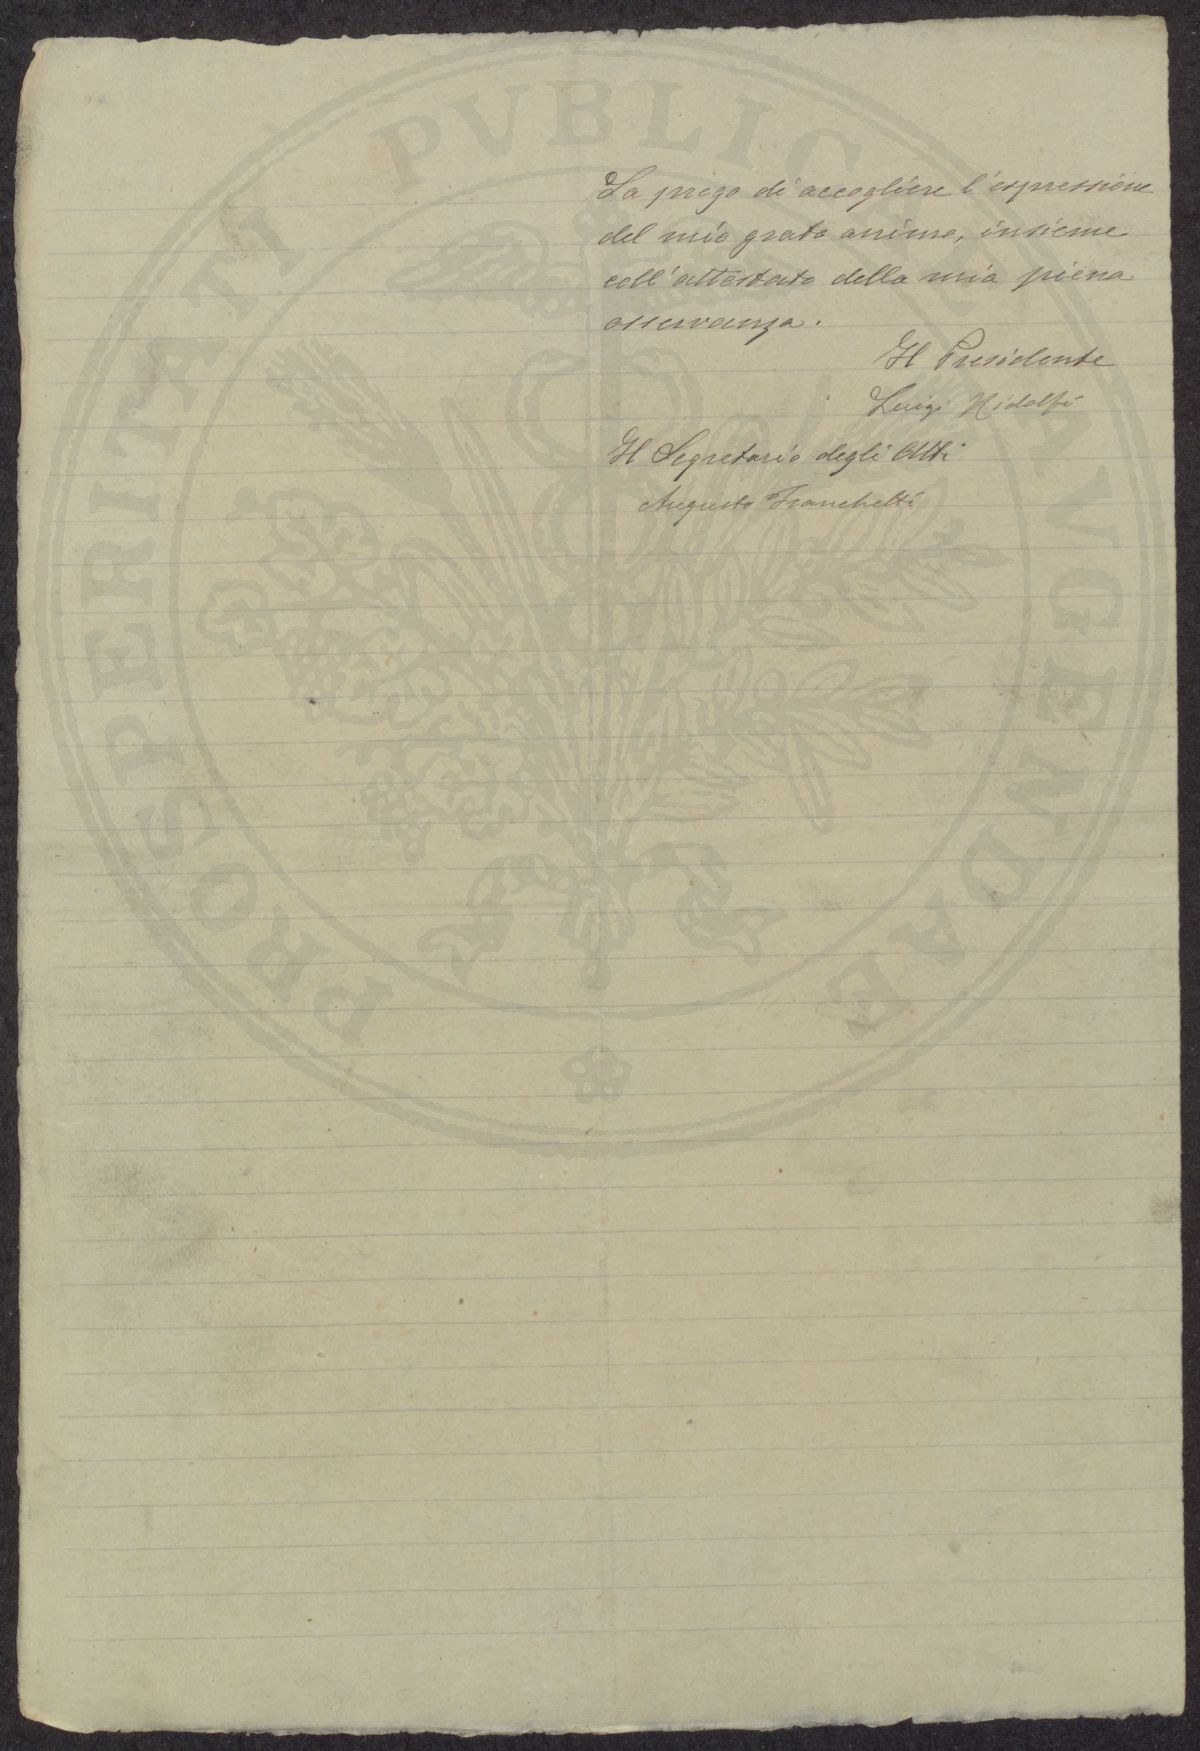 PROSPERITATI PVBLICAE AVGENDAE
La prego di accogliere l'espressione
del mio grato animo, insieme
coll'attestato della mia piena
osservanza.
Il Presidente
Luigi Ridolfi
Il Segretario degli Atti
Augusto Franchetti